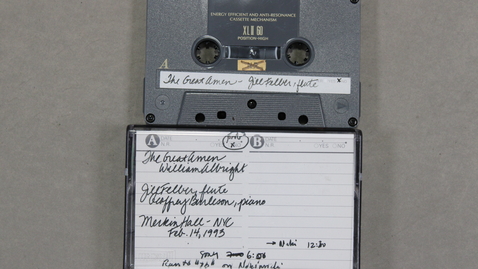 ENERGY EFFICIENT AND ANTI-RESONANCE
CASSETTE MECHANISM
XLII 60
POSITION·HIGH
A
The Great Amen - Jill Felber, flute x
A B
x
The Great Amen
William Albright
Jill Felber, flute
Geoffrey Burleson, piano
Merkin Hall - NYC
Feb. 14, 1993
→ Naki 12:30
Sony 6:00
on